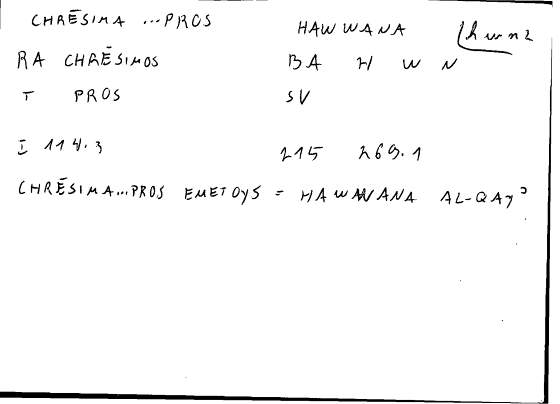 CHRĒSIMA ...PROS HAWWANA hwn2
RA CHRĒSIMOS BA H W N
T PROS SV
I 114.3 215 269.1
CHRĒSIMA...PROS EMETOYS = HAWWANA AL-QAY'